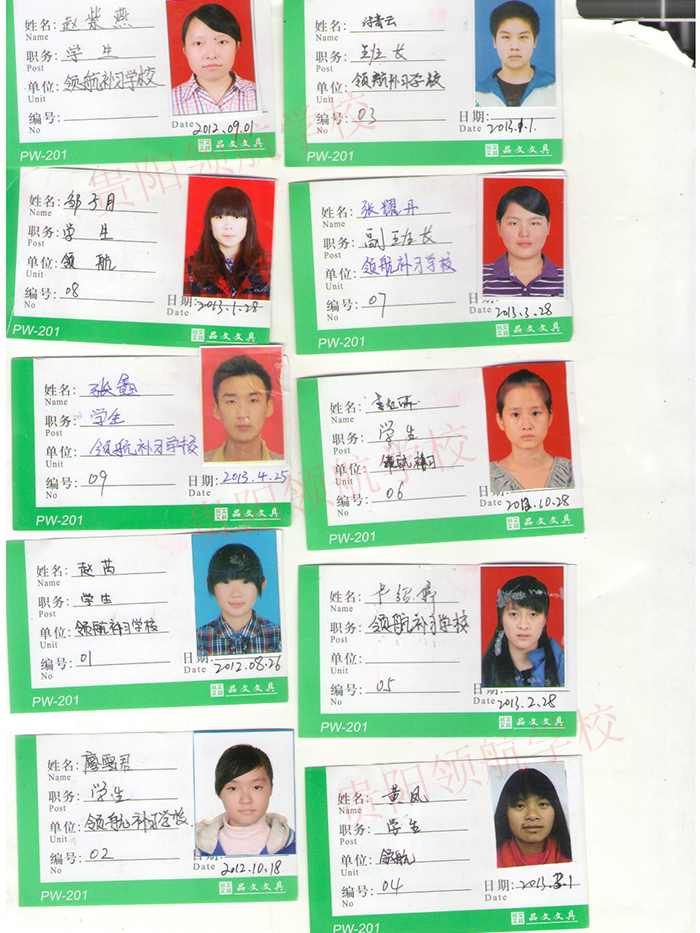 姓名: 赵紫燕
Name
职务: 学生
Post
单位: 领航补习学校
Unit
编号:
No
Date 2012.09.01
PW-201
品文文具
姓名: 付青云
Name
职务: 班长
Post
单位: 领航补习学校
Unit
编号: 03
No
日期:
Date 2013.
PW-201
品文文具
姓名: 邹子月
Name
职务: 学生
Post
单位: 领航
Unit
编号: 08
No
日期: 2013.1.28
Date
PW-201
品文文具
姓名: 张耀丹
Name
职务: 副班长
Post
单位: 领航补习学校
Unit
编号: 07
No
日期:
Date 2013.3.28
PW-201
品文文具
姓名: 张
Name
职务: 学生
Post
单位: 领航补习学校
Unit
编号: 09
No
日期: 2013.4.25
Date
PW-201
品文文具
姓名:
Name
职务: 学生
Post
单位: 领航补习
Unit
编号: 06
No
日期:
Date .10.28
PW-201
品文文具
姓名: 赵芮
Name
职务: 学生
Post
单位: 领航补习学校
Unit
编号: 01
No
日期:
Date 2012.08.26
PW-201
品文文具
姓名:
Name
职务: 领航补习学校
Post
单位:
Unit
编号: 05
No
日期:
Date 2013.2.28
PW-201
品文文具
姓名: 廖雪君
Name
职务: 学生
Post
单位: 领航补习学校
Unit
编号: 02
No
日期:
Date 2012.10.18
PW-201
品文文具
姓名: 黄凤
Name
职务: 学生
Post
单位: 领航
Unit
编号: 04
No
日期: 2013.
Date
PW-201
品文文具
贵阳领航学校
贵阳领航学校
贵阳领航学校